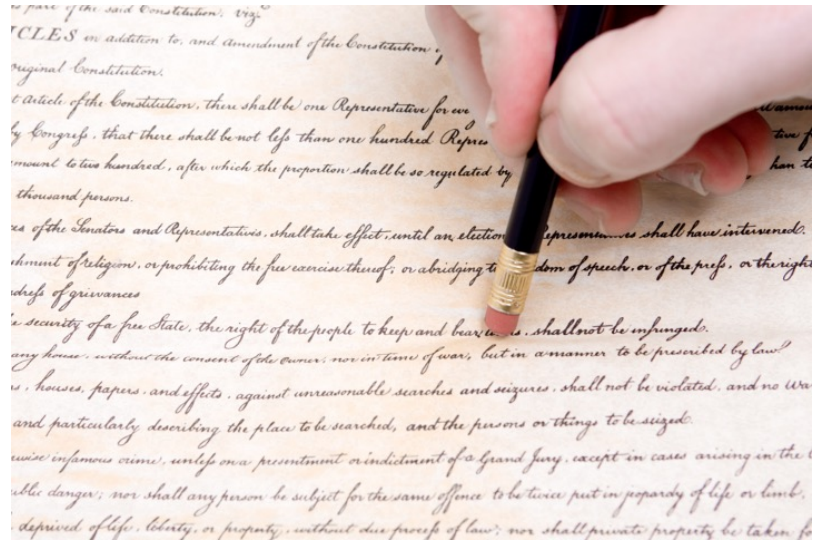 s part of the said Constitution, viz.
ICLES in addition to, and Amendment of the Constitution
riginal Constitution.
t Article of the Constitution, there shall be one Representative for eve
by Congreſs, that there shall be not leſs than one hundred Repres tive f
mount to two hundred, after which the proportion shall be so regulated by han t
thousand persons.
es of the Senators and Representatives, shall take effect, until an election epresentatives shall have intervened.
hment of religion, or prohibiting the free exercise thereof, or abridging t dom of speech, or of the preſs, or the right
dreſs of grievances
e security of a free State, the right of the people to keep and bear shall not be infringed.
any house, without the consent of the owner, nor in time of war, but in a manner to be prescribed by law.
s, houses, papers, and effects, against unreasonable searches and seizures, shall not be violated, and no Wa
and particularly describing the place to be searched, and the persons or things to be seized.
ewise infamous crime, unleſs on a presentment or indictment of a Grand Jury, except in cases arising in the
ublic danger; nor shall any person be subject for the same offence to be twice put in jeopardy of life or limb,
deprived of life, liberty, or property, without due proceſs of law; nor shall private property be taken fo